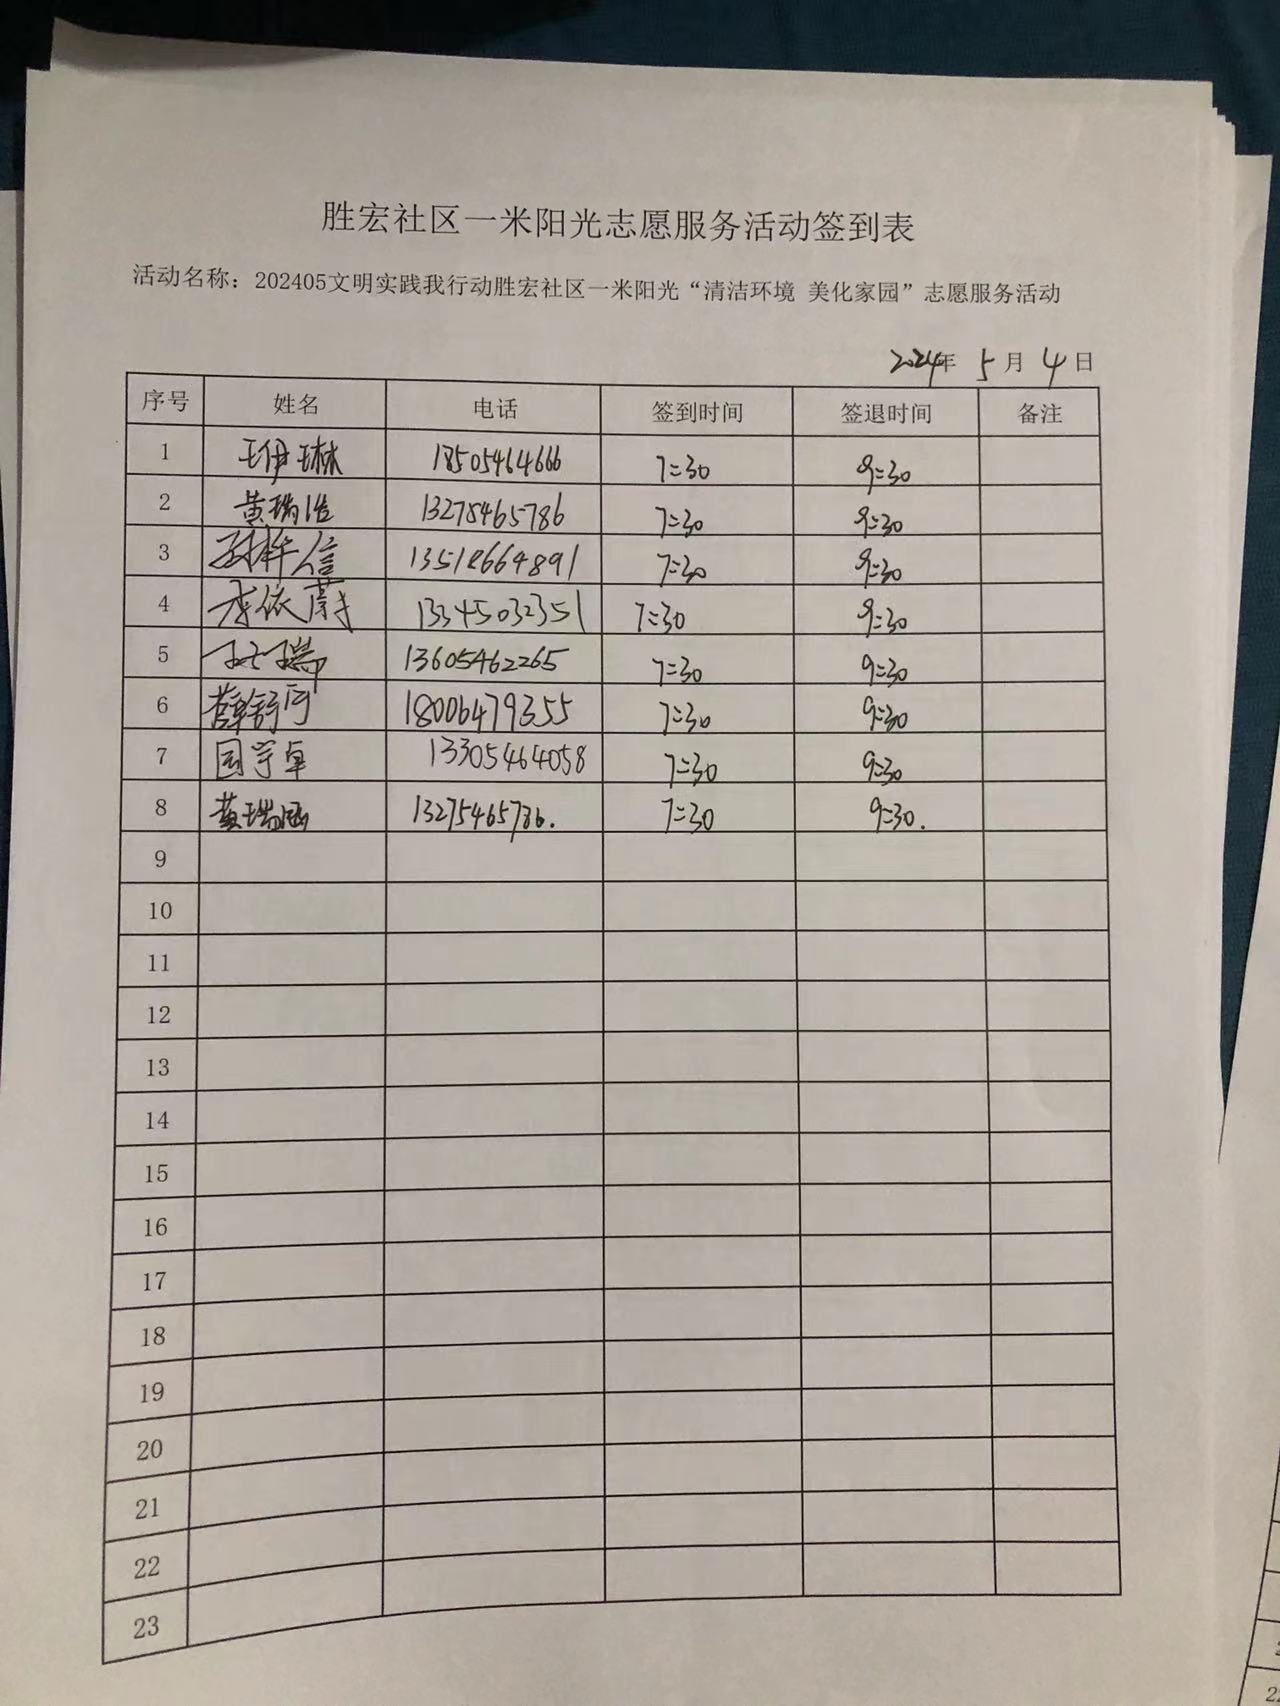 胜宏社区一米阳光志愿服务活动签到表
活动名称：202405文明实践我行动胜宏社区一米阳光“清洁环境 美化家园”志愿服务活动
2024年 5月 4日
序号 姓名 电话 签到时间 签退时间 备注
1 王伊琳 18505464666 7:30 9:30
2 黄瑞浩 13275465786 7:30 9:30
3 信 13518664891 7:30 9:30
4 李依蔚 13345032351 7:30 9:30
5 瑞 13605462265 7:30 9:30
6 薛舒 18006479355 7:30 9:30
7 国宇卓 13305464058 7:30 9:30
8 黄瑞涵 13275465786. 7:30 9:30.
9
10
11
12
13
14
15
16
17
18
19
20
21
22
23